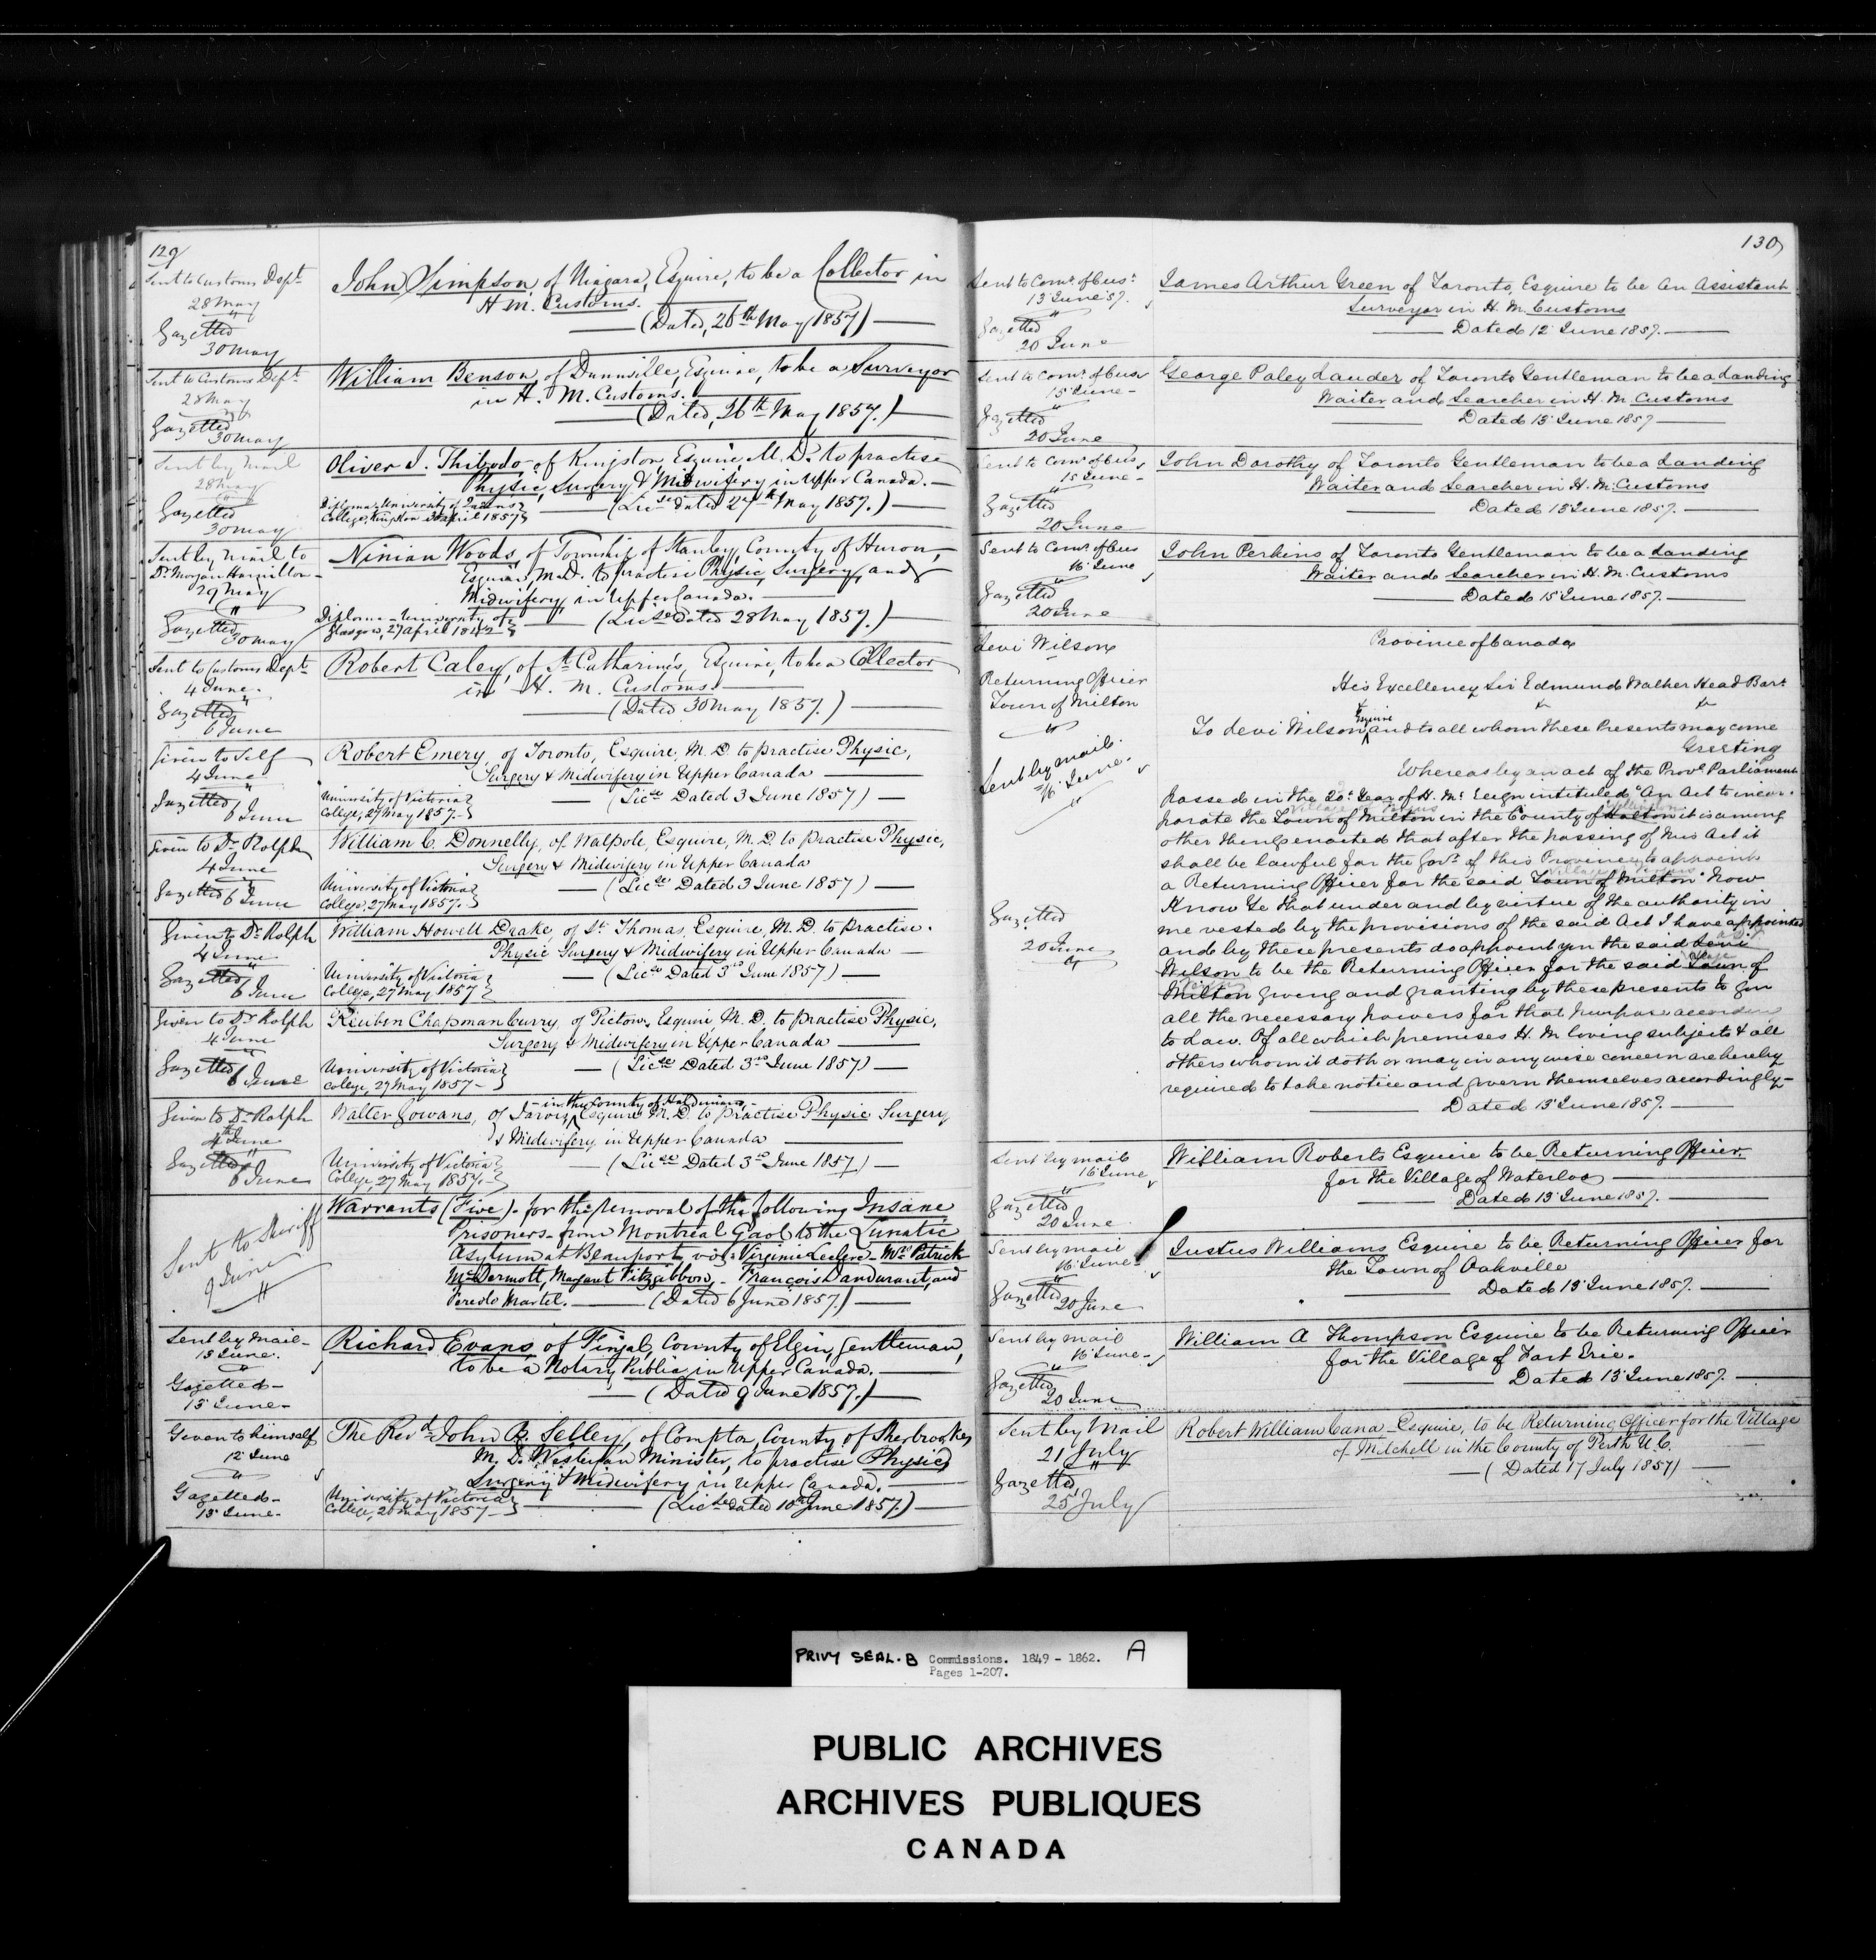 129
Sent to Customs Dept
28 May
"
Gazetted
30 May
John Simpson, of Niagara, Esquire, to be a Collector in
H. M. Customs.
(Dated, 26th May 1857)
Sent to Customs Dept
28 May
Gazetted
30 May
William Benson, of Dunnville, Esquire, to be a Surveyor
in H. M. Customs.
(Dated, 26th May 1857.)
Sent by Mail
28 May
"
Gazetted
30 May
Oliver J. Thibodo of Kingston Esquire M. D. to practise
Physic, Surgery & Midwifery in Upper Canada.
Diploma University of Queens
College, Kingston April 1857
(Licse dated 27th May 1857.)
Sent by Mail to
Dr Morgan Hamilton
29 May
"
Gazetted
30 May
Ninian Woods, of Township of Stanley, County of Huron,
Esquire, M.D. to practise Physic, Surgery, and
Midwifery, in Upper Canada.
Diploma - University of
Glasgow, 27 April 1842
(Licse Dated 28 May 1857.)
Sent to Customs Dept
4 June.
"
Gazetted
6 June
Robert Caley, of St Catharines, Esquire, to be a Collector
in H. M. Customs.
(Dated 30 May 1857.)
Given to Self
4 June
"
Gazetted
6 June
Robert Emery, of Toronto, Esquire, M. D to practise Physic,
Surgery & Midwifery in Upper Canada
University of Victoria
College, 27 May 1857.
(Licse Dated 3 June 1857)
Given to Dr Rolph
4 June
"
Gazetted 6 June
William C. Donnelly, of Walpole, Esquire, M. D. to practise Physic,
Surgery & Midwifery in Upper Canada
University of Victoria
College, 27 May 1857.
(Licse Dated 3 June 1857)
Given to Dr Rolph
4 June
"
Gazetted
6 June
William Howell Drake, of St Thomas, Esquire, M. D. to practise.
Physic Surgery & Midwifery in Upper Canada
University of Victoria
College, 27 May 1857
(Licse Dated 3rd June 1857)
Given to Dr Rolph
4 June
Gazetted
6 June
Reuben Chapman Curry, of Picton, Esquire, M. D. to practise Physic,
Surgery & Midwifery in Upper Canada
University of Victoria
College, 27 May 1857
(Licse Dated 3rd June 1857)
Given to Dr Rolph
4th June
"
Gazetted
6 June
in the County of Haldimand,
Walter Gowans, of Jarvis, Esquire M. D. to practise Physic Surgery
& Midwifery in Upper Canada
University of Victoria
College, 27 May 1857.
(Licse Dated 3rd June 1857)
Sent to Sheriff
9 June
"
Warrants (Five) for the removal of the following Insane
Prisoners from Montreal Gaol to the Lunatic
Asylum at Beauport, viz: Virginie Leclerc - Mrs Patrick
McDermott, Margaret Fitzgibbon, - François Dandurant, and
Martel. (Dated 6 June 1857.)
Sent by Mail
13 June.
"
Gazetted
13 June
Richard Evans, of Fingal, County of Elgin, Gentleman,
to be a Notary Public, in Upper Canada.
(Dated 9 June 1857.)
Given to himself
12 June
"
Gazetted
13 June
The Revd John B. Selley, of Compton, County of Sherbrooke,
M. D. Wesleyan Minister, to practise Physic,
Surgery & Midwifery in Upper Canada.
University of Victoria
College, 20 May 1857
(Licse dated 10th June 1857.)
130
Sent to Comr of Cus
13 June 57.
"
Gazetted
20 June
James Arthur Green of Toronto, Esquire to be An Assistant
Surveyor in H. M. Customs
Dated 12 June 1857.
Sent to Comr of Cus
15 June
"
Gazetted
20 June
George Paley Lauder of Toronto Gentleman to be a Landing
Waiter and Searcher in H. M. Customs
Dated 15 June 1857
Sent to Comr of Cus
15 June
"
Gazetted
20 June
John Dorothy of Toronto Gentleman to be a Landing
Waiter and Searcher in H. M. Customs
Dated 15 June 1857.
Sent to Comr of Cus
16 June
"
Gazetted
20 June
John Perkins of Toronto Gentleman to be a Landing
Waiter and Searcher in H. M. Customs
Dated 15 June 1857.
Levi Wilson
Returning Officer
Town of Milton
Sent by mail.
16 June.
"
Gazetted
20 June
Province of Canada
His Excellency Sir Edmund Walker Head Bart
Esquire
To Levi Wilson and to all whom these Presents may come
Greeting
Whereas by an act of the Provl Parliament
Passed in the 20th Year of H. Ms Reign intituled "An Act to incor-
porate the Town of Milton in the County of Halton it is among
other things enacted that after the passing of this Act it
shall be lawful for the Govr of this Province to appoint
a Returning Officer for the said Town of Milton" Now
Know Ye that under and by virtue of the authority in
me vested by the provisions of the said Act I have appointed
and by these presents do appoint you the said Levi
Wilson to be the Returning Officer for the said Town of
Milton giving and granting by these presents to you
all the necessary powers for that purpose according
to Law. Of all which premises H. M loving subjects & all
others whom it doth or may in any wise concern are hereby
required to take notice and govern themselves accordingly
Dated 13 June 1857.
Sent by mail
16 June
"
Gazetted
20 June
William Roberts Esquire to be Returning Officer
for the Village of Waterloo
Dated 13 June 1857.
Sent by mail
16 June
"
Gazetted
20 June
Justus Williams Esquire to be Returning Officer for
the Town of Oakville
Dated 13 June 1857.
Sent by mail
16 June
"
Gazetted
20 June
William A Thompson Esquire to be Returning Officer
for the Village of Fort Erie.
Dated 13 June 1857.
Sent by Mail
21 July
"
Gazetted
25 July
Robert William Cana Esquire, to be Returning Officer for the Village
of Mitchell in the County of Perth U. C.
(Dated 17 July 1857)
PRIVY SEAL.B Commissions. 1849 - 1862. A
Pages 1-207.
PUBLIC ARCHIVES
ARCHIVES PUBLIQUES
CANADA